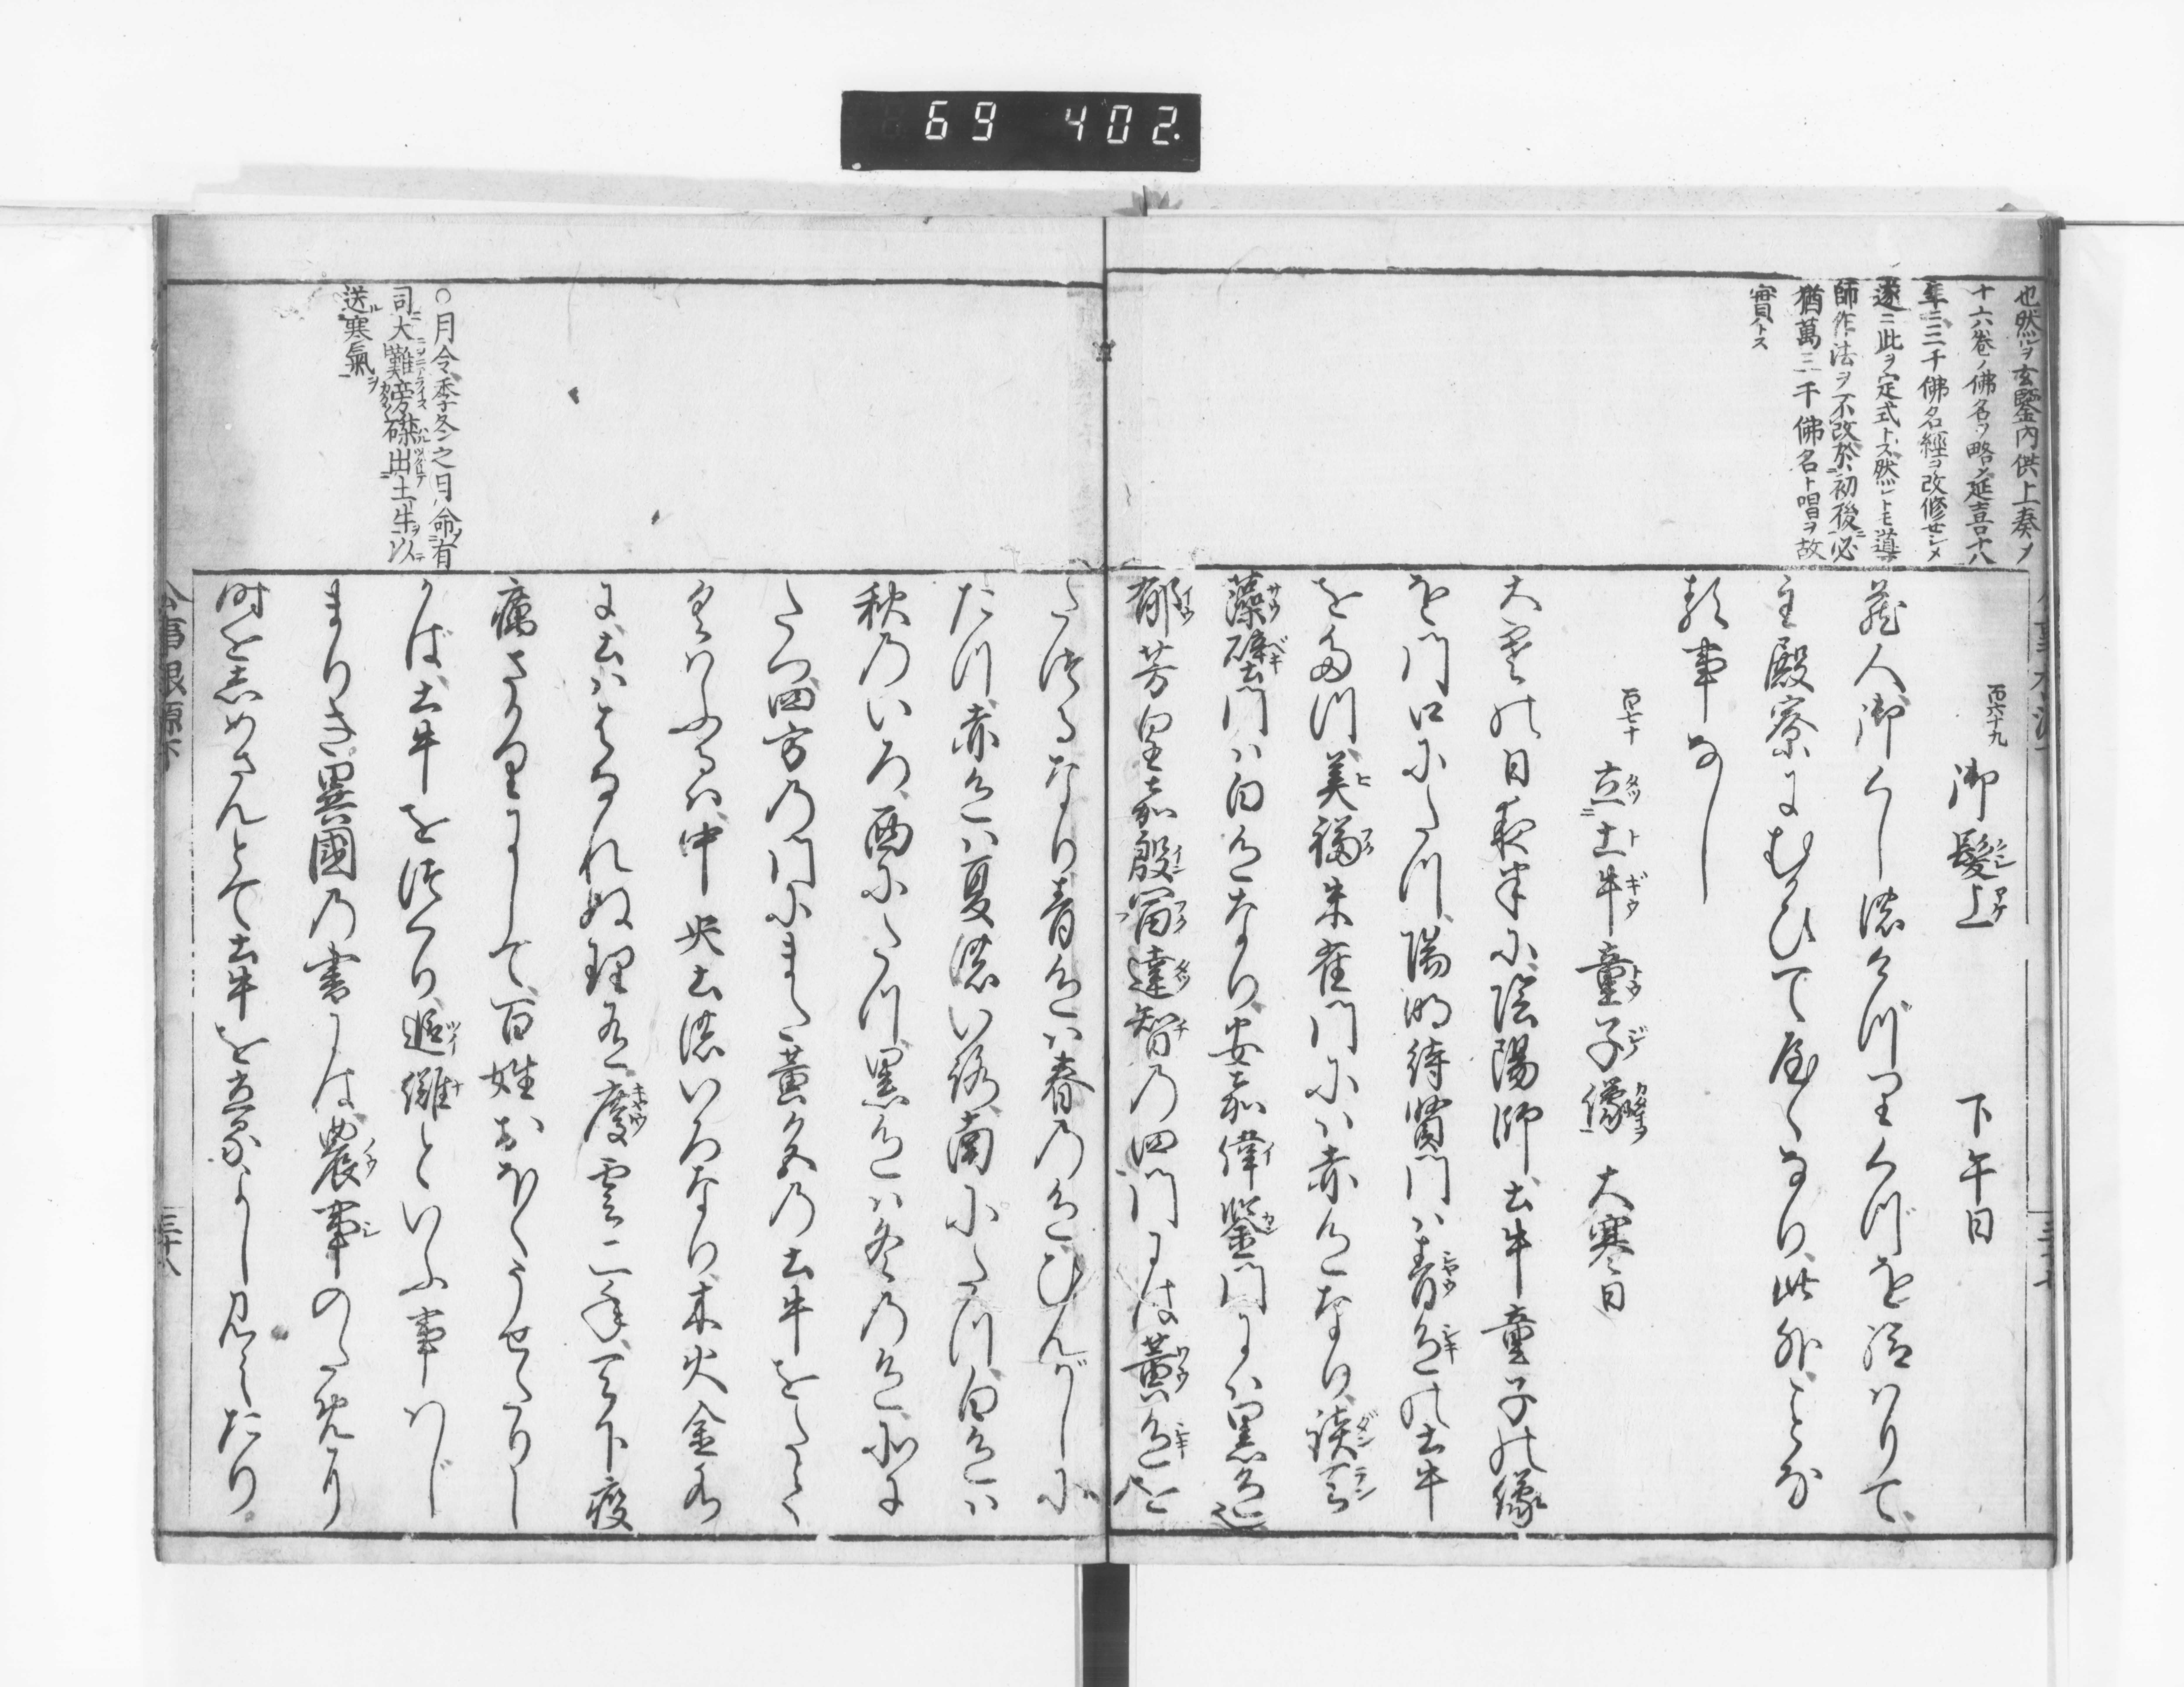 69 402.
也然ルヲ玄鑒内供上奏ノ
十六巻ノ佛名ヲ略シ延喜十八
年ニ三千佛名經ヲ改修せシメ
遂ニ此ヲ定式トス然レトモ導
師作法ヲ不改於初後ニ必
猶萬三千佛名ト唱ヲ故
實トス
百六十九 御髮上 下午日
蔵人御くし濃けづりくづを給ハりて、
主殿寮にむかひてやくなり、此外ことな
る事なし
百七十 立土牛童子像 大寒日
大寒の日夜半に陰陽師土牛童子の像
を門口にたつ、陽明待賢門ハ青色の土牛
をたつ、美福朱雀門にハ赤色なり、談天
藻壁門ハ白色なり、安嘉偉鑒門にハ黒色、
郁芳皇嘉殷富達智の四門には黄色を
たつるなり、青色ハ春の色、ひんがしに
たつ、赤色ハ夏濃いろ、南にたつ、白色ハ
秋のいろ、西にたつ、黒色ハ冬の色、北に
たつ、四方の門にまた黄色の土牛をたてく
ハふるハ中央土濃いろなり、木火金水
に土ハはなれぬ理也、慶雲二年、天下疫
癘さかりにして、百姓おほくうせたりし
かば、土牛をつくり、追儺といふ事ハじ
まりき、異國の書には農事のはじめ
時を志めさんとて土牛を立るよし見えたり。
○月令季冬之月命有
司大難旁磔出土牛以
送寒氣
公事根源下 三十八